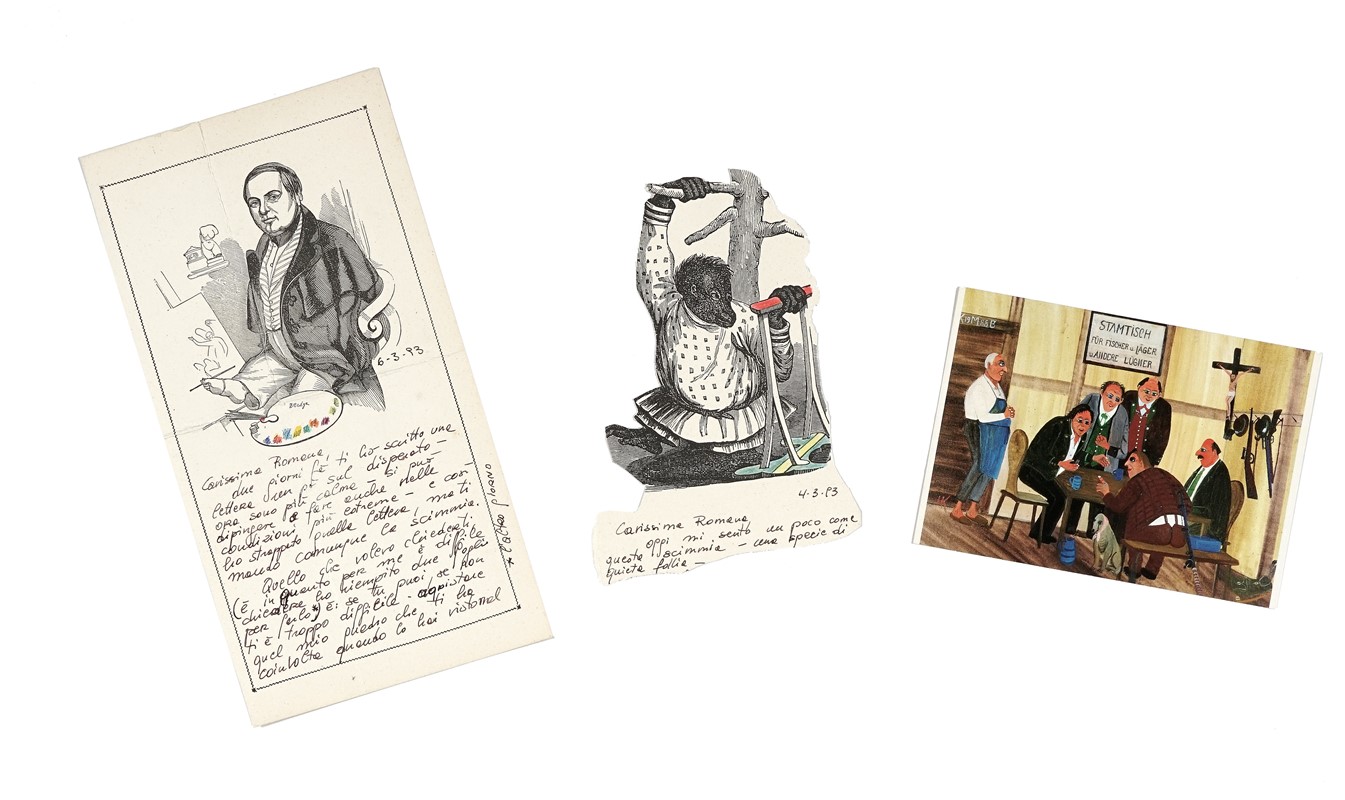 6-3-93
Carissima Romana,
due giorni fa, ti ho scritto una
lettera un po' sul disperato -
ora sono più calma - Si può
dipingere e fare anche nelle
condizioni più estreme - e così
ho strappato quella lettera, ma ti
mando comunque la scimmia.
Quello che volevo chiederti,
(è in quanto per me è difficile
chiedere ho riempito due fogli
per farlo*) è: se tu puoi, se non
ti è troppo difficile - acquistare
quel mio quadro che ti ha
coinvolta quando lo hai visto
* l'altro giorno
4-3-93
Carissima Romana
oggi mi sento un poco come
questa scimmia - una specie di
quieta follia -
STAMTISCH
FÜR FISCHER u. JÄGER
u. ANDERE LÜGNER